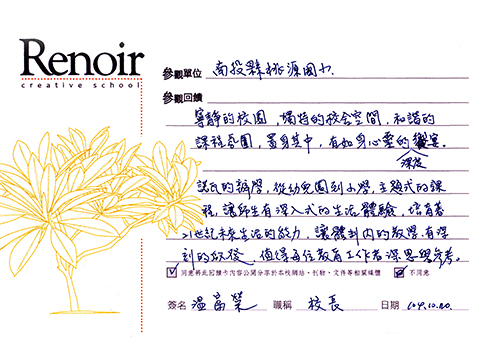 Renoir
creative school
參觀單位 南投縣桃源國小.
參觀回饋
寧靜的校園，獨特的校舍空間，和諧的
課程氛圍，置身其中，有如身心靈的饗宴.
深從
諾瓦的辦學，從幼兒園到小學，主題式的課
程，讓師生有深入式的生活體驗，培育著
21世紀未來生活的能力，讓體制內的教學有深
刻的，值得每位教育工作者深思與參考。
同意將此回饋卡內容公開分享於本校網站、刊物、文件等相關媒體 不同意
簽名 溫富榮 職稱 校長 日期 104.10.20.